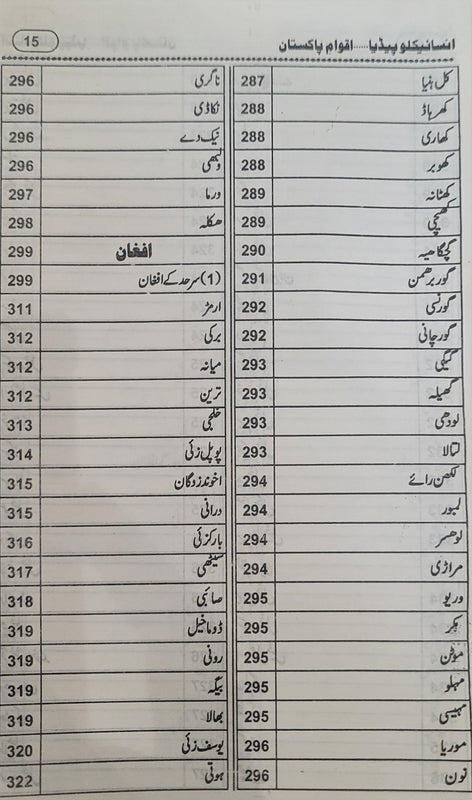 انسائیکلوپیڈیا.....اقوام پاکستان
15
کل ہنیا 287
کھرہاڈ 288
کھاری 288
کھوبر 288
کھٹانہ 289
کھیچی 289
کچگاھیہ 290
گور برھمن 291
گورسی 292
گورچانی 292
گیگی 293
گھیلہ 293
لودھی 293
لتالا 293
لکھن رائے 294
لمبور 294
لوھسر 294
مراڑی 294
وریو 295
بکر 295
موٹن 295
مہلو 295
مہیسی 295
موریا 296
نون 296
ناگری 296
نکاڈی 296
نیک دے 296
ولبھی 296
ورما 297
ھکلہ 298
افغان 299
(1) سرحد کے افغان 299
ارمڑ 311
برکی 312
میانہ 312
ترین 312
خلجی 313
پوپل زئی 314
اخوندزدگان 315
درانی 315
بارکزئی 316
سیٹھی 317
صابی 318
ڈوما خیل 319
رونی 319
بیگہ 319
بھالا 319
یوسف زئی 320
ہوتی 322